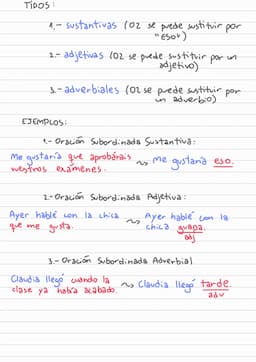 TIPOS:
1.- sustantivas (O2 se puede sustituir por
"ESO")
2.- adjetivas (O2 se puede sustituir por un
adjetivo)
3.- adverbiales (O2 se puede sustituir por
un adverbio)
EJEMPLOS:
1.- Oración Subordinada Sustantiva:
Me gustaría que aprobárais ~> Me gustaría eso.
vuestros exámenes.
2.- Oración Subordinada Adjetiva:
Ayer hablé con la chica ~> Ayer hablé con la
que me gusta. chica guapa.
adj
3.- Oración Subordinada Adverbial
Claudia llegó cuando la ~> Claudia llegó tarde.
clase ya había acabado. adv